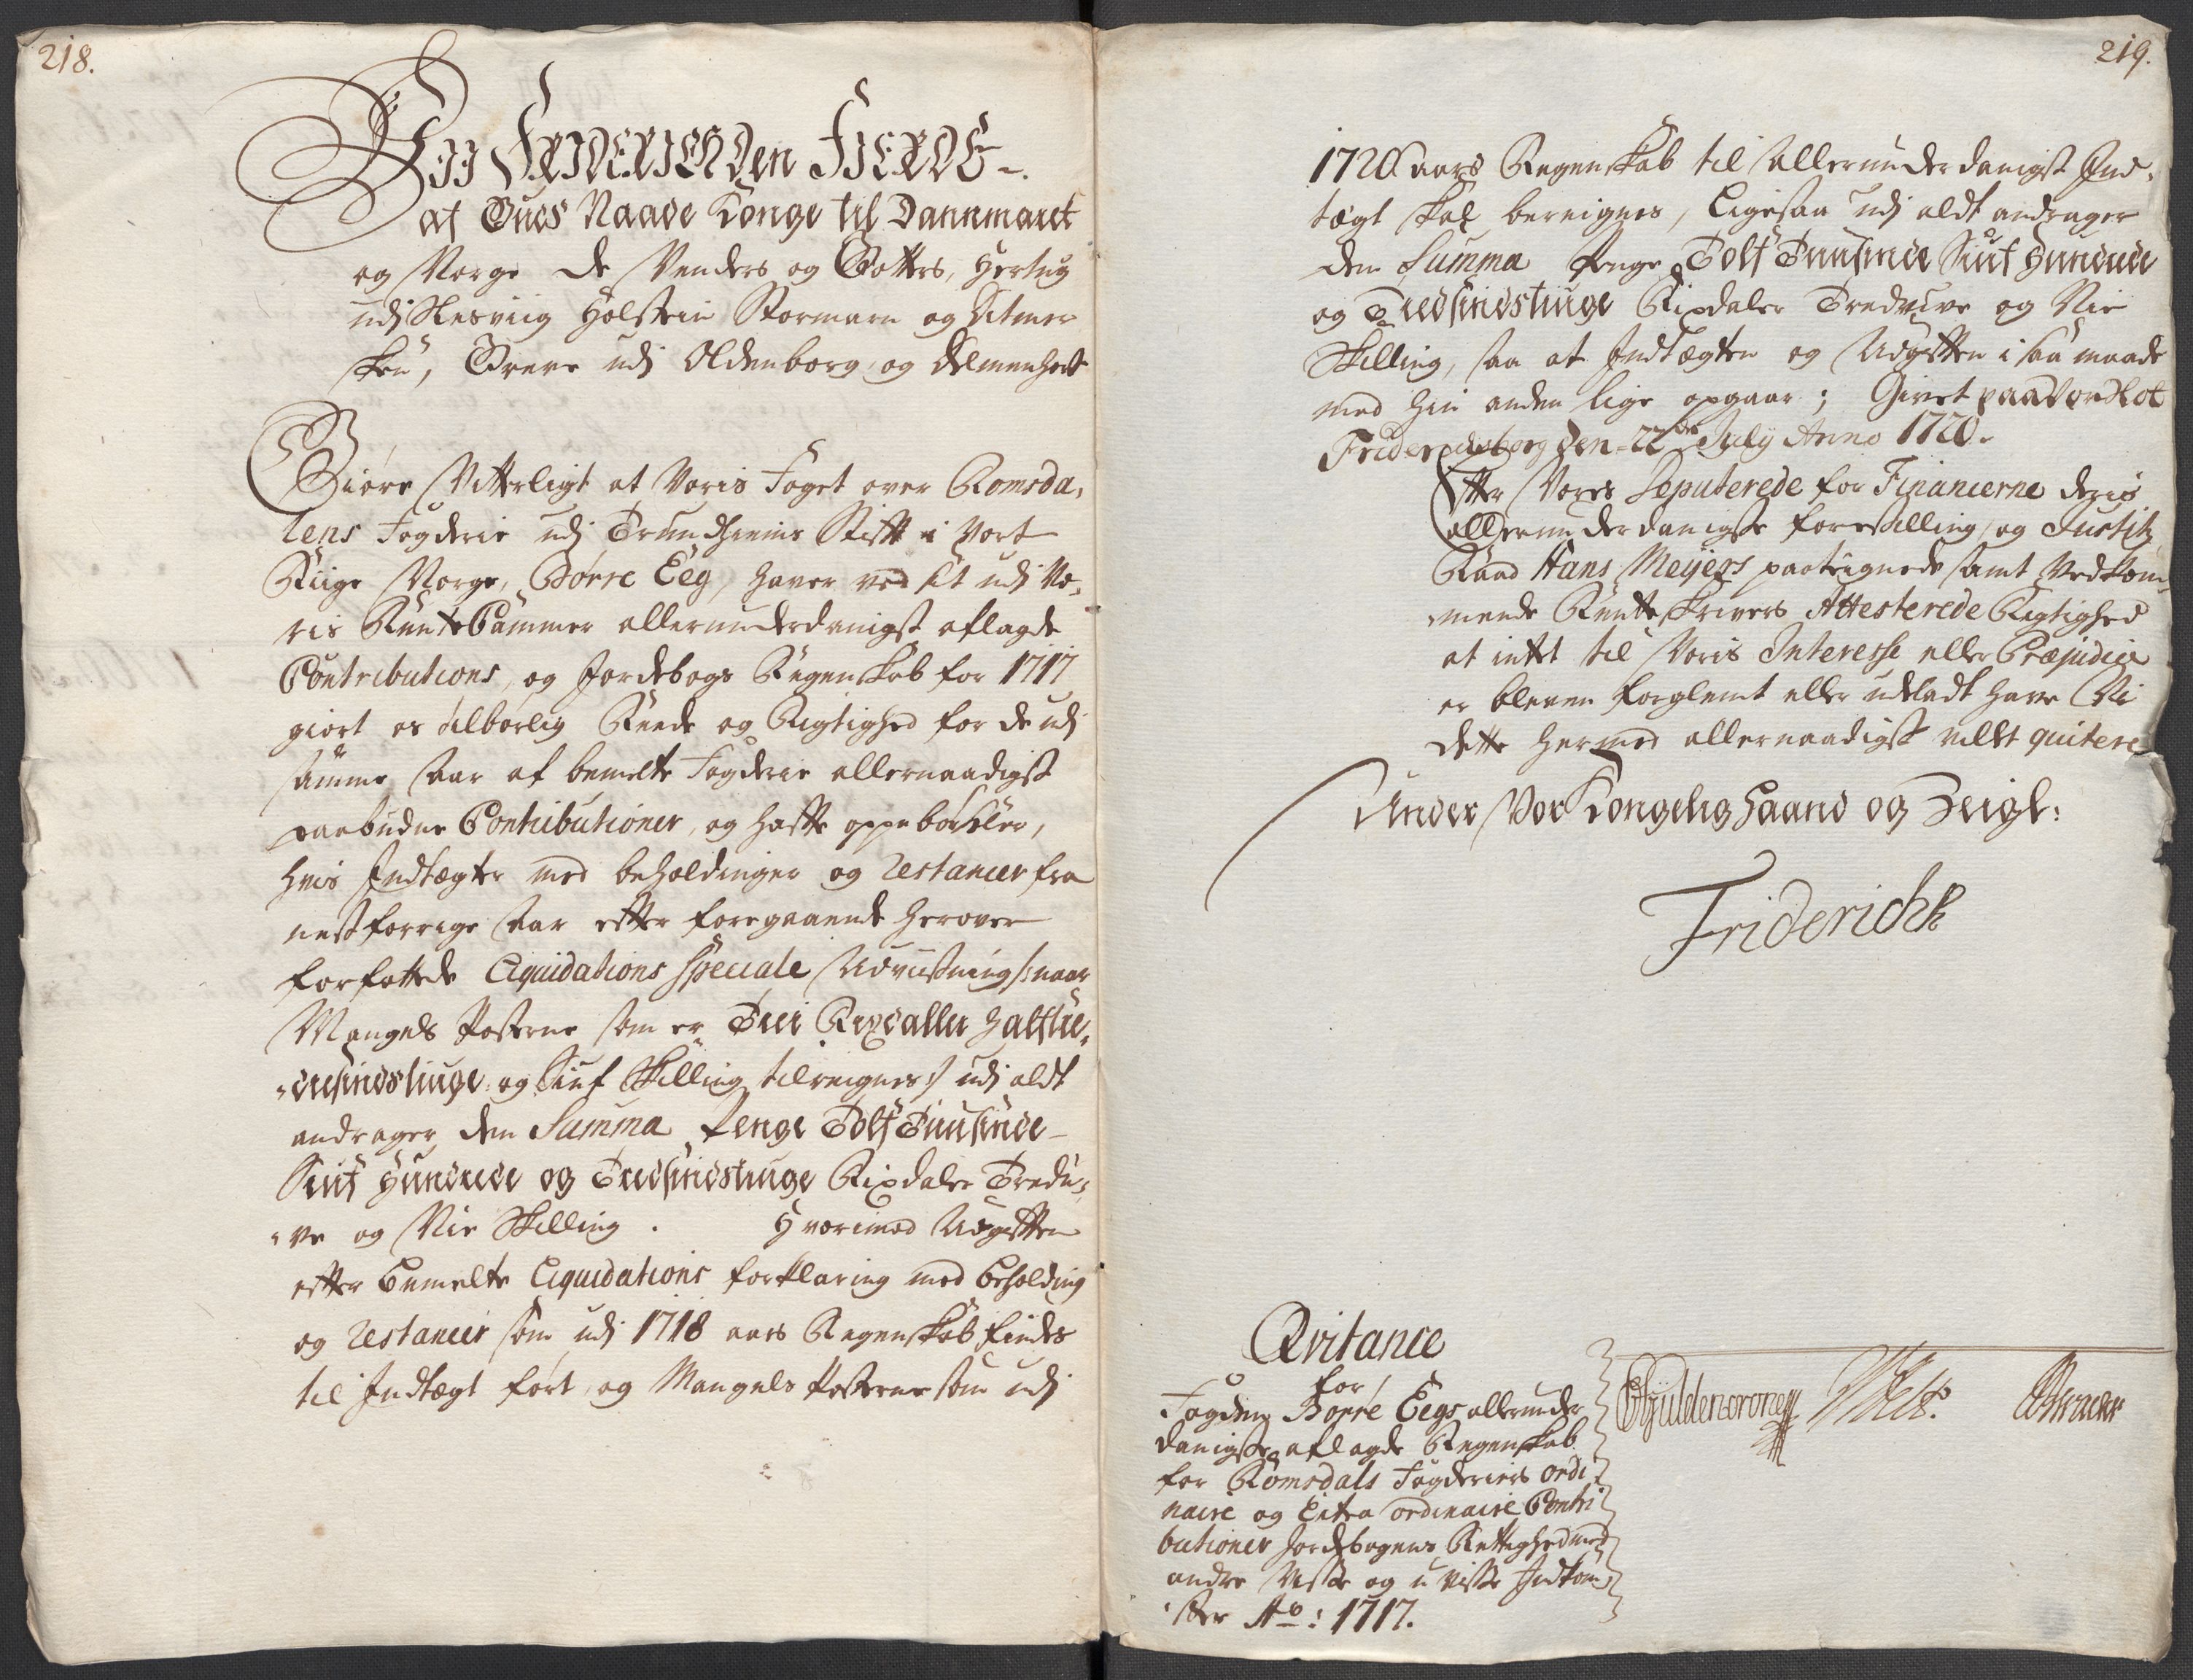 218.
Wii FRIDERICH den FIERDE
af Guds Naade Konge til Dannmarck
og Norge de Venders og Gotters, Hertug
udj Slesviig Holstein Stormarn og Ditmer
sken, Greve udj Oldenborg og Delmenhorst
Giøre Vitterligt at Voris Foget over Romsda,
lens Fogderie udj Trundhiems Stift i Vort
Riige Norge, Børre Eeg, haver ved sit udi Vo,
ris RenteCammer allerunderdanigst aflagde
Contributions, og Jordebogs Regenskab for 1717
giort os tilbørlig Reede og Rigtighed for de udj
samme Aar af bemelte Fogderie allernaadigst
paabudne Contributioner, og hafte oppebørseler,
hvis Indtægter med beholdninger og restancer fra
nestforrige Aar efter foregaaende herover
forfattede Liquidations Speciale Udviisning /: naar
Mangels Posterne som er Trei Rixdaller Halftre,
,dresindstiuge og Siuf Skilling tilreignes :/ udj aldt
andrager den Summa Penge Tolf Tuusinde
Siuf Hundrede og Tredsindstiuge Rixdaler Tredi,
,ve og Nie Skilling. Hvorimod Udgiften
efter bemelte Liquidations forklaring med beholding
og restancer som udj 1718 aars Regenskab findes
til Indtægt ført, og Mangels Posterne som udj
219.
1720 aars Regenskab til allerunderdanigst Ind,
tægt skal bereignes, Ligesaa udj aldt andrager
den Summa Penge Tolf Tuusinde Siuf Hundrede
og Tredsindstiuge Rixdaler Tredive og Nie
Skilling, saa at Indtægten og Udgiften i saa maade
med hin anden lige opgaar; Givet paa Vor Slot
Friderichsborg den 22de July Anno 1720.
Efter Vores Deputerede for Financierne deris
allerunderdanigste forestilling, og Justitz
Raad Hans Meyers paateignede samt Vedkom,
,mende Renteskrivers Attesterede Rigtighed
at intet til Voris Interesse eller Præjudice
er bleven forglemt eller udeladt have Vi
dette hermed allernaadigst villet quitere
Under Vor Kongelig Haand og Zeigl:
Friderich R
Qvitance
for
Fogden Børre Eegs allerunder
danigste aflagde Regenskab
for Romsdals Fogderies ordi
naire og Extra ordinaire Contri
butioner Jordebogens Rettighed med
andre Visse og u Visse Indkom,
,ster Ao: 1717.
CGyldencrone